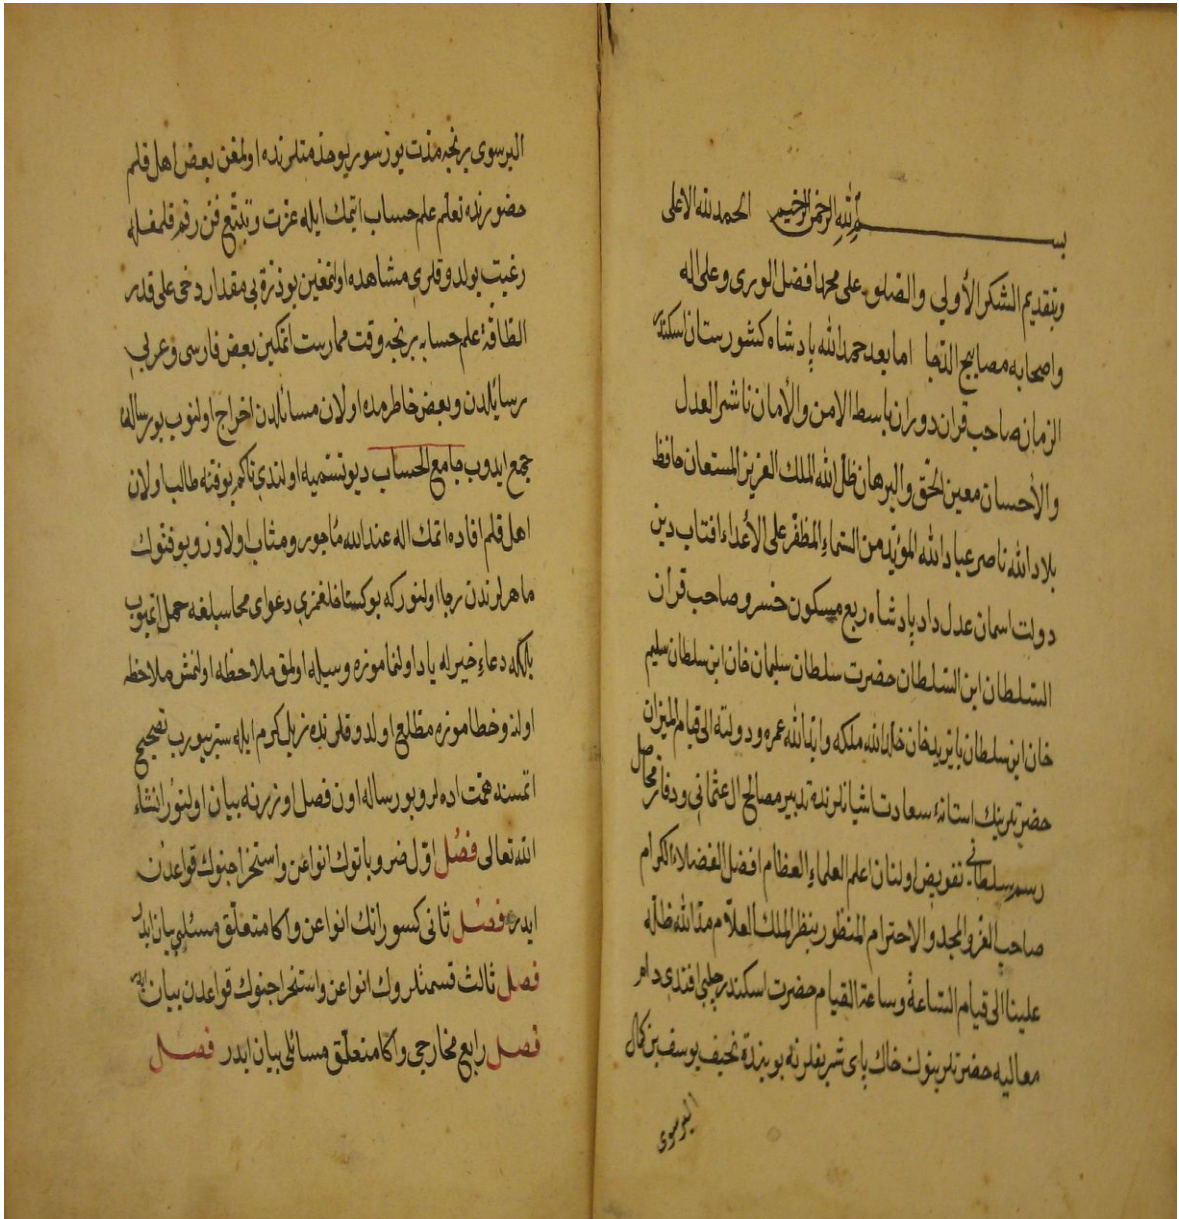 بسم الله الرحمن الرحيم الحمد لله الاعلى
وبتقديم الشكر الأولي والصلوة على محمد افضل الورى وعلى اله
واصحابه مصابيح الدجا اما بعد حمد الله پادشاه كشورستان اسكندر
الزمان صاحب قران دوران باسط الامن والأمان ناشر العدل
والأحسان معين الحق والبرهان ظل الله الملك العزيز المستعان حافظ
بلاد الله ناصر عباد الله المؤيد من السماء المظفر على الأعداء افتاب دين
دولت اسمان عدل داد پادشاه ربع مسكون خسرو صاحب قران
السلطان ابن السلطان حضرت سلطان سليمان خان ابن سلطان سليم
خان ابن سلطان بايزيد خان خلد الله ملكه وابد الله عمره ودولته الى قيام الميزان
حضرتلرينك استانۀ سعادت اشيانلرنده تدبير مصالح ال عثماني ودفاتر محاصل
رسم سلطاني تفويض اولنان اعلم العلماء العظام افضل الفضلاء الكرام
صاحب العز والمجد والاحترام المنظور بنظر الملك العلام مد الله ظله
علينا الى قيام الساعة وساعة القيام حضرت اسكندر چلبي افندي دام
معاليه حضرتلرينوك خاك پاى شريفلرنه بو بندۀ نحيف يوسف بن كمال
البرسوى
البرسوى برنجه مدت يوز سوريو خدمتلرنده اولمغن بعض اهل قلم
حضورنده تعلم علم حساب اتمك ايله عزت وتتبع فن رقم قلمفله
رغبت بولدوقلرى مشاهده اولنمغين بو ذرۀ بى مقدار دخى على قدر
الطاقة علم حسابه برنجه وقت ممارست اتمكين بعض فارسى وعربى
رسايلدن وبعض خاطرمده اولان مسائلدن اخراج اولنوب بو رساله
جمع ايدوب جامع الحساب ديو تسميه اولندي تا كم بو فنه طالب اولان
اهل قلم افاده اتمك اله عند الله مأجور ومثاب اولاوز وبو فنوك
ماهرلرندن رجا اولنور كه بو كستاخلغمزى دعواى محاسبلغه حمل اتميوب
بلكه دعاء خير له ياد اولنمامزه وسيله اولمق ملاحظه اولنمش ملاحظه
اولنه وخطاموزه مطلع اولدوقلرنده ذيل كرم ايله ستر بيورب تصحيح
اتمسنه همت ايده لر وبو رساله اون فصل اوزرنه بيان اولنور انشاء
الله تعالى فصل اول ضروباتوك انواعن واستخراجنوك قواعدن
ايدر فصل ثانى كسوراتك انواعن واكا متعلق مسئلهيى بيان ايدر
فصل ثالث قسمتلروك انواعن واستخراجنوك قواعدن بيان ايدر
فصل رابع مخارجى واكا متعلق مسائلى بيان ايدر فصل